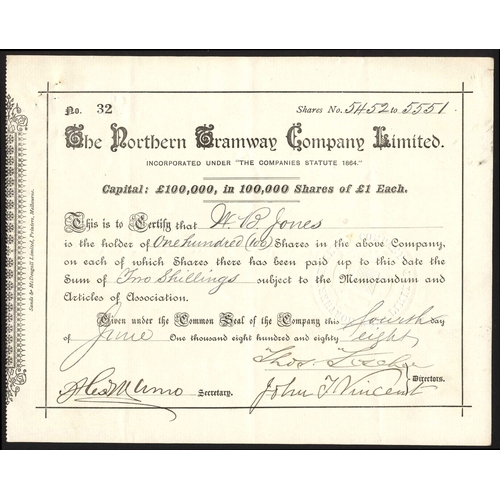 No. 32 Shares No. 5452 to 5551.
The Northern Tramway Company Limited.
INCORPORATED UNDER "THE COMPANIES STATUTE 1864."
Capital: £100,000, in 100,000 Shares of £1 Each.
This is to Certify that W. B. Jones
is the holder of One hundred (100) Shares in the above Company,
on each of which Shares there has been paid up to this date the
Sum of Two Shillings subject to the Memorandum and
Articles of Association.
Given under the Common Seal of the Company this fourth day
of June One thousand eight hundred and eighty eight
Thos.
John Vincent
Directors.
Secretary.
Sands & McDougall Limited, Printers, Melbourne.